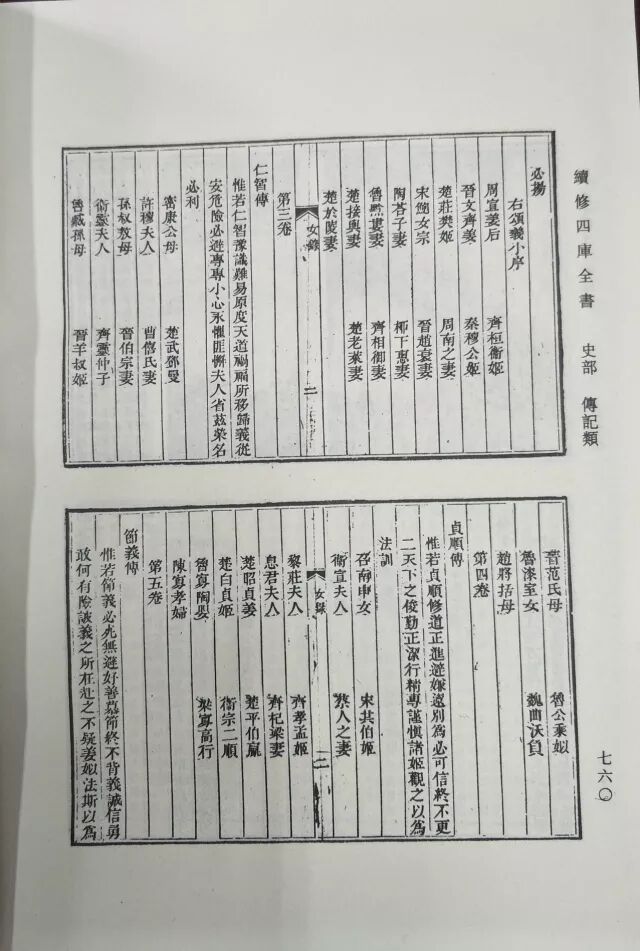 續修四庫全書 史部 傳記類
必揚
右頌義小序
周宣姜后 齊桓衞姬
晉文齊姜 秦穆公姬
楚莊樊姬 周南之妻
宋鮑女宗 晉趙衰妻
陶荅子妻 柳下惠妻
魯黔婁妻 齊相御妻
楚接輿妻 楚老萊妻
楚於陵妻
女錄 二
第三卷
仁智傳
惟若仁智豫識難易原度天道禍福所移歸義從
安危險必避專專小心永懼匪懈夫人省茲榮名
必利
密康公母 楚武鄧曼
許穆夫人 曹僖氏妻
孫叔敖母 晉伯宗妻
衞靈夫人 齊靈仲子
魯臧孫母 晉羊叔姬
晉范氏母 魯公乘姒
魯漆室女 魏曲沃負
趙將括母
第四卷
貞順傳
惟若貞順修道正進避嫌遠別為必可信終不更
二天下之俊勤正潔行精專謹慎諸姬觀之以為
法訓
召南申女 宋共伯姬
衞宣夫人 蔡人之妻
女錄 二
黎莊夫人 齊孝孟姬
息君夫人 齊杞梁妻
楚昭貞姜 楚平伯嬴
楚白貞姬 衞宗二順
魯寡陶嬰 梁寡高行
陳寡孝婦
第五卷
節義傳
惟若節義必死無避好善慕節終不背義誠信勇
敢何有險詖義之所在赴之不疑姜姒法斯以為
七六〇